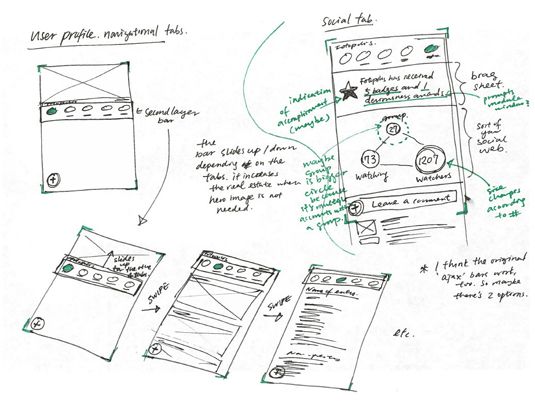 User profile. navigational tabs.
← second layer
bar
the
bar slides up / down
depending on the
tabs. it increases
the real estate when
hero image is not
needed.
slides
up
SWIPE
SWIPE
Name of entree.
etc.
Social tab.
has received
5 badges and 1
awards
indication
of
accomplishment
(maybe)
brag
sheet.
prompts
modular
window?
sort of
your
social
web.
group
27
73
watching
1207
watchers
maybe
group
is bigger
circle
because
it's multiple
accounts within
a group.
size changes
according
to #
Leave a comment
* I think the original
'ajax' bars work,
too. so maybe
there's 2 options.